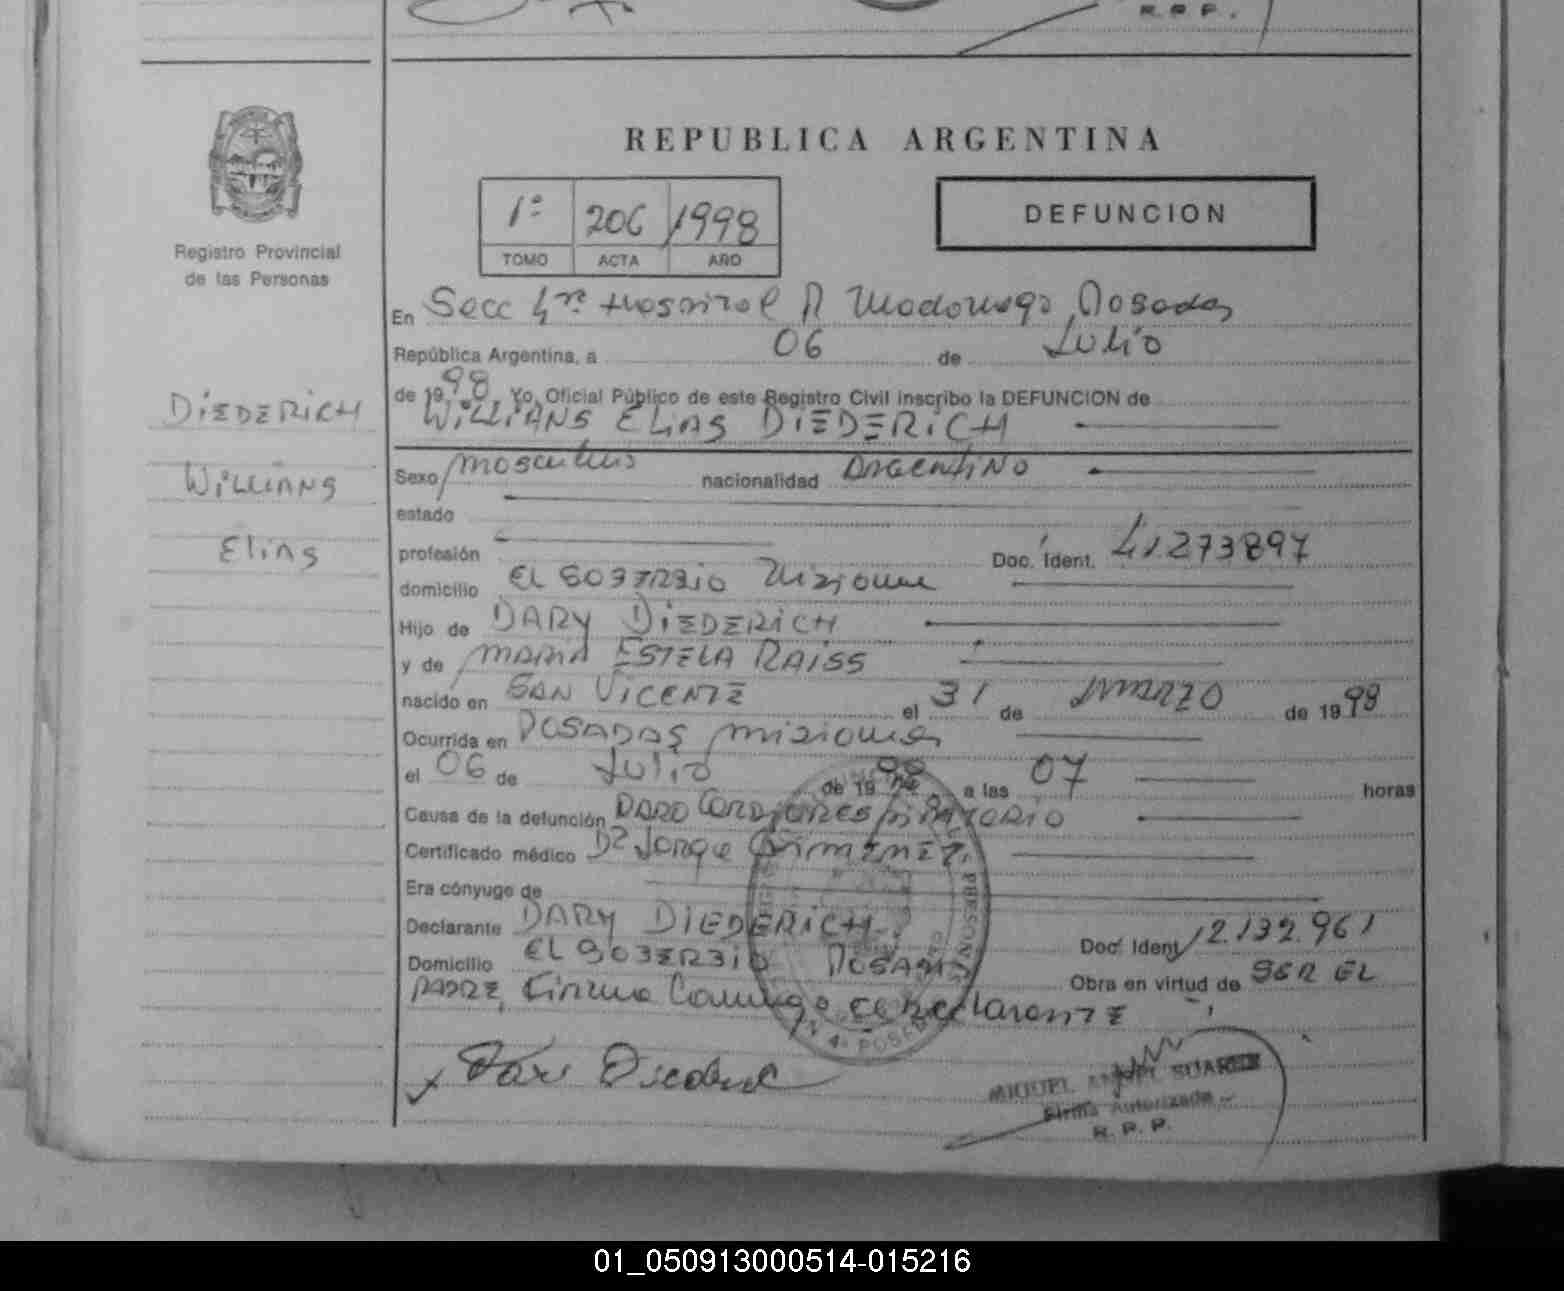 R. P. P.
REPUBLICA ARGENTINA
1ª 206 1998
TOMO ACTA AÑO
DEFUNCION
Registro Provincial
de las Personas
DIEDERICH
WILLIANS
ELIAS
En Secc 4ta Hospital R Madariaga Posadas
República Argentina, a 06 de Julio
de 1998, Yo, Oficial Público de este Registro Civil inscribo la DEFUNCION de
WILLIANS ELIAS DIEDERICH
Sexo masculino nacionalidad ARGENTINO
estado
profesión Doc. Ident. 41.273897
domicilio EL SOBERBIO Misiones
Hijo de DARY DIEDERICH
y de MARIA ESTELA RAISS
nacido en SAN VICENTE el 31 de MARZO de 1998
Ocurrida en POSADAS Misiones
el 06 de Julio de 1998 a las 07 horas
Causa de la defunción PARO CARDIORESPIRATORIO
Certificado médico Dr Jorge GIMENEZ
Era cónyuge de
Declarante DARY DIEDERICH Doc. Ident 12.132.961
Domicilio EL SOBERBIO POSADAS Obra en virtud de SER EL
PADRE, Firma Conmigo el Declarante
MIGUEL ANGEL SUAREZ
Firma Autorizada
R. P. P.
01_050913000514-015216